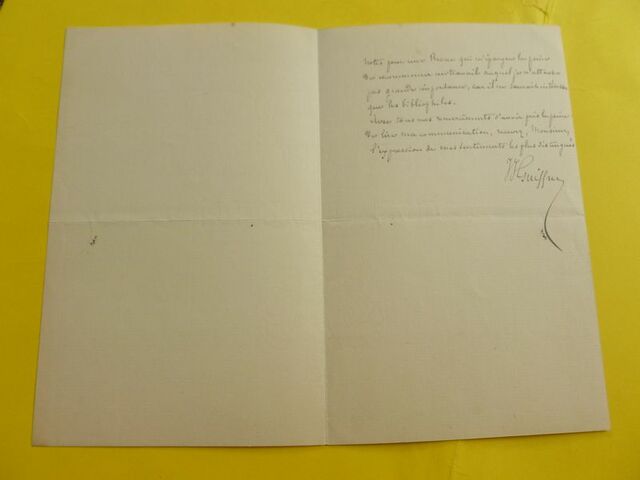 Notes pour une Revue qui m'épargne la peine
de recommencer un travail auquel je n'attache
pas grande importance, car il ne saurait intéresser
que les bibliophiles.
Avec tous mes remerciments d'avoir pris la peine
de lire ma communication, recevez, Monsieur,
l'expression de mes sentiments les plus distingués
Guiffrey